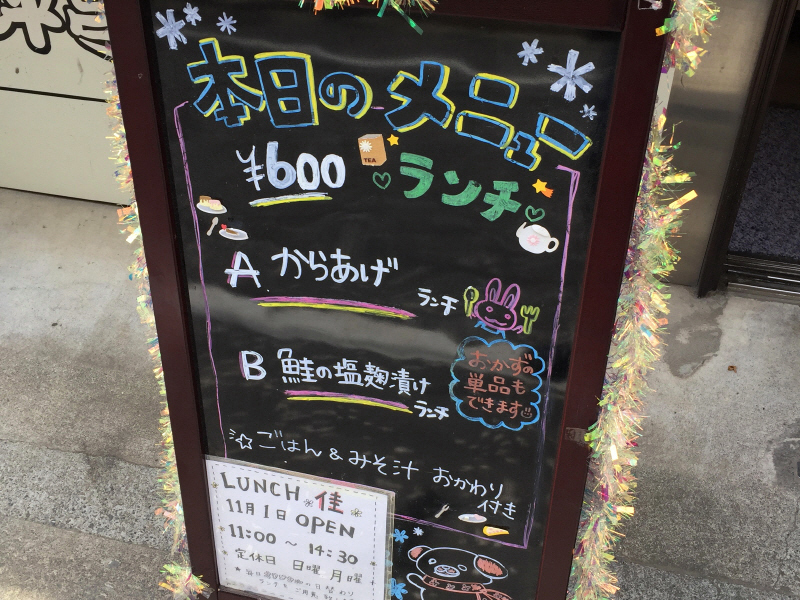 本日のメニュー
¥600 ランチ
TEA
A からあげ
ランチ
B 鮭の塩麹漬け
ランチ
おかずの
単品も
できます
☆ごはん&みそ汁 おかわり
付き
LUNCH 佳
11月1日 OPEN
11:00 ~ 14:30
定休日 日曜 月曜